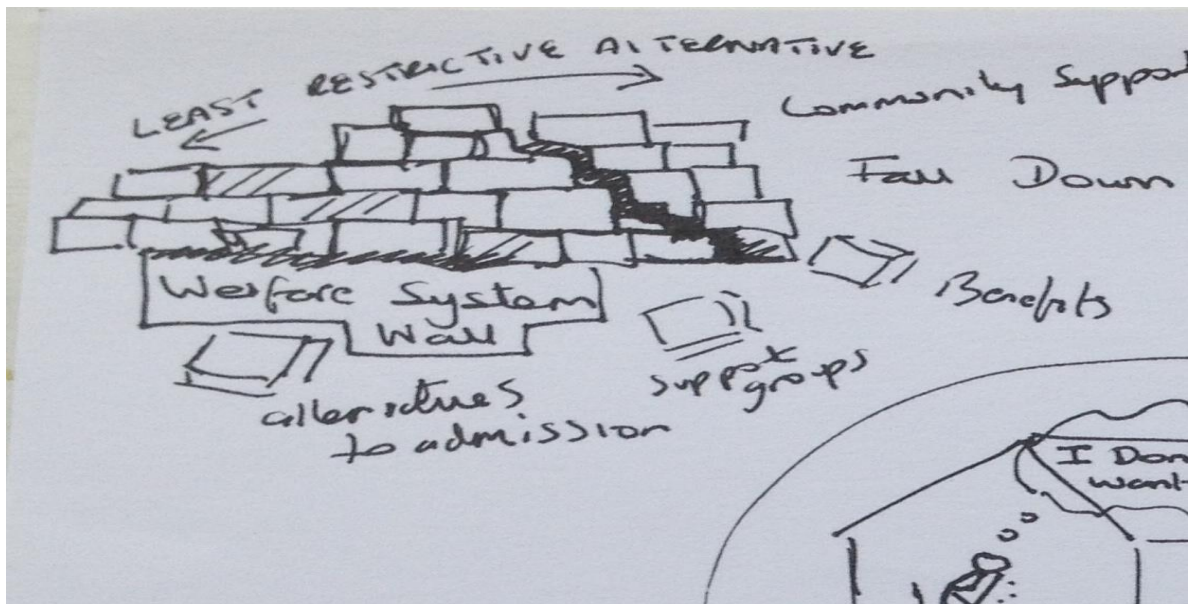 LEAST RESTRICTIVE ALTERNATIVE
Community Support
Fall Down
Welfare System
Wall
Benefits
support
groups
alternatives
to admission
I Don
want